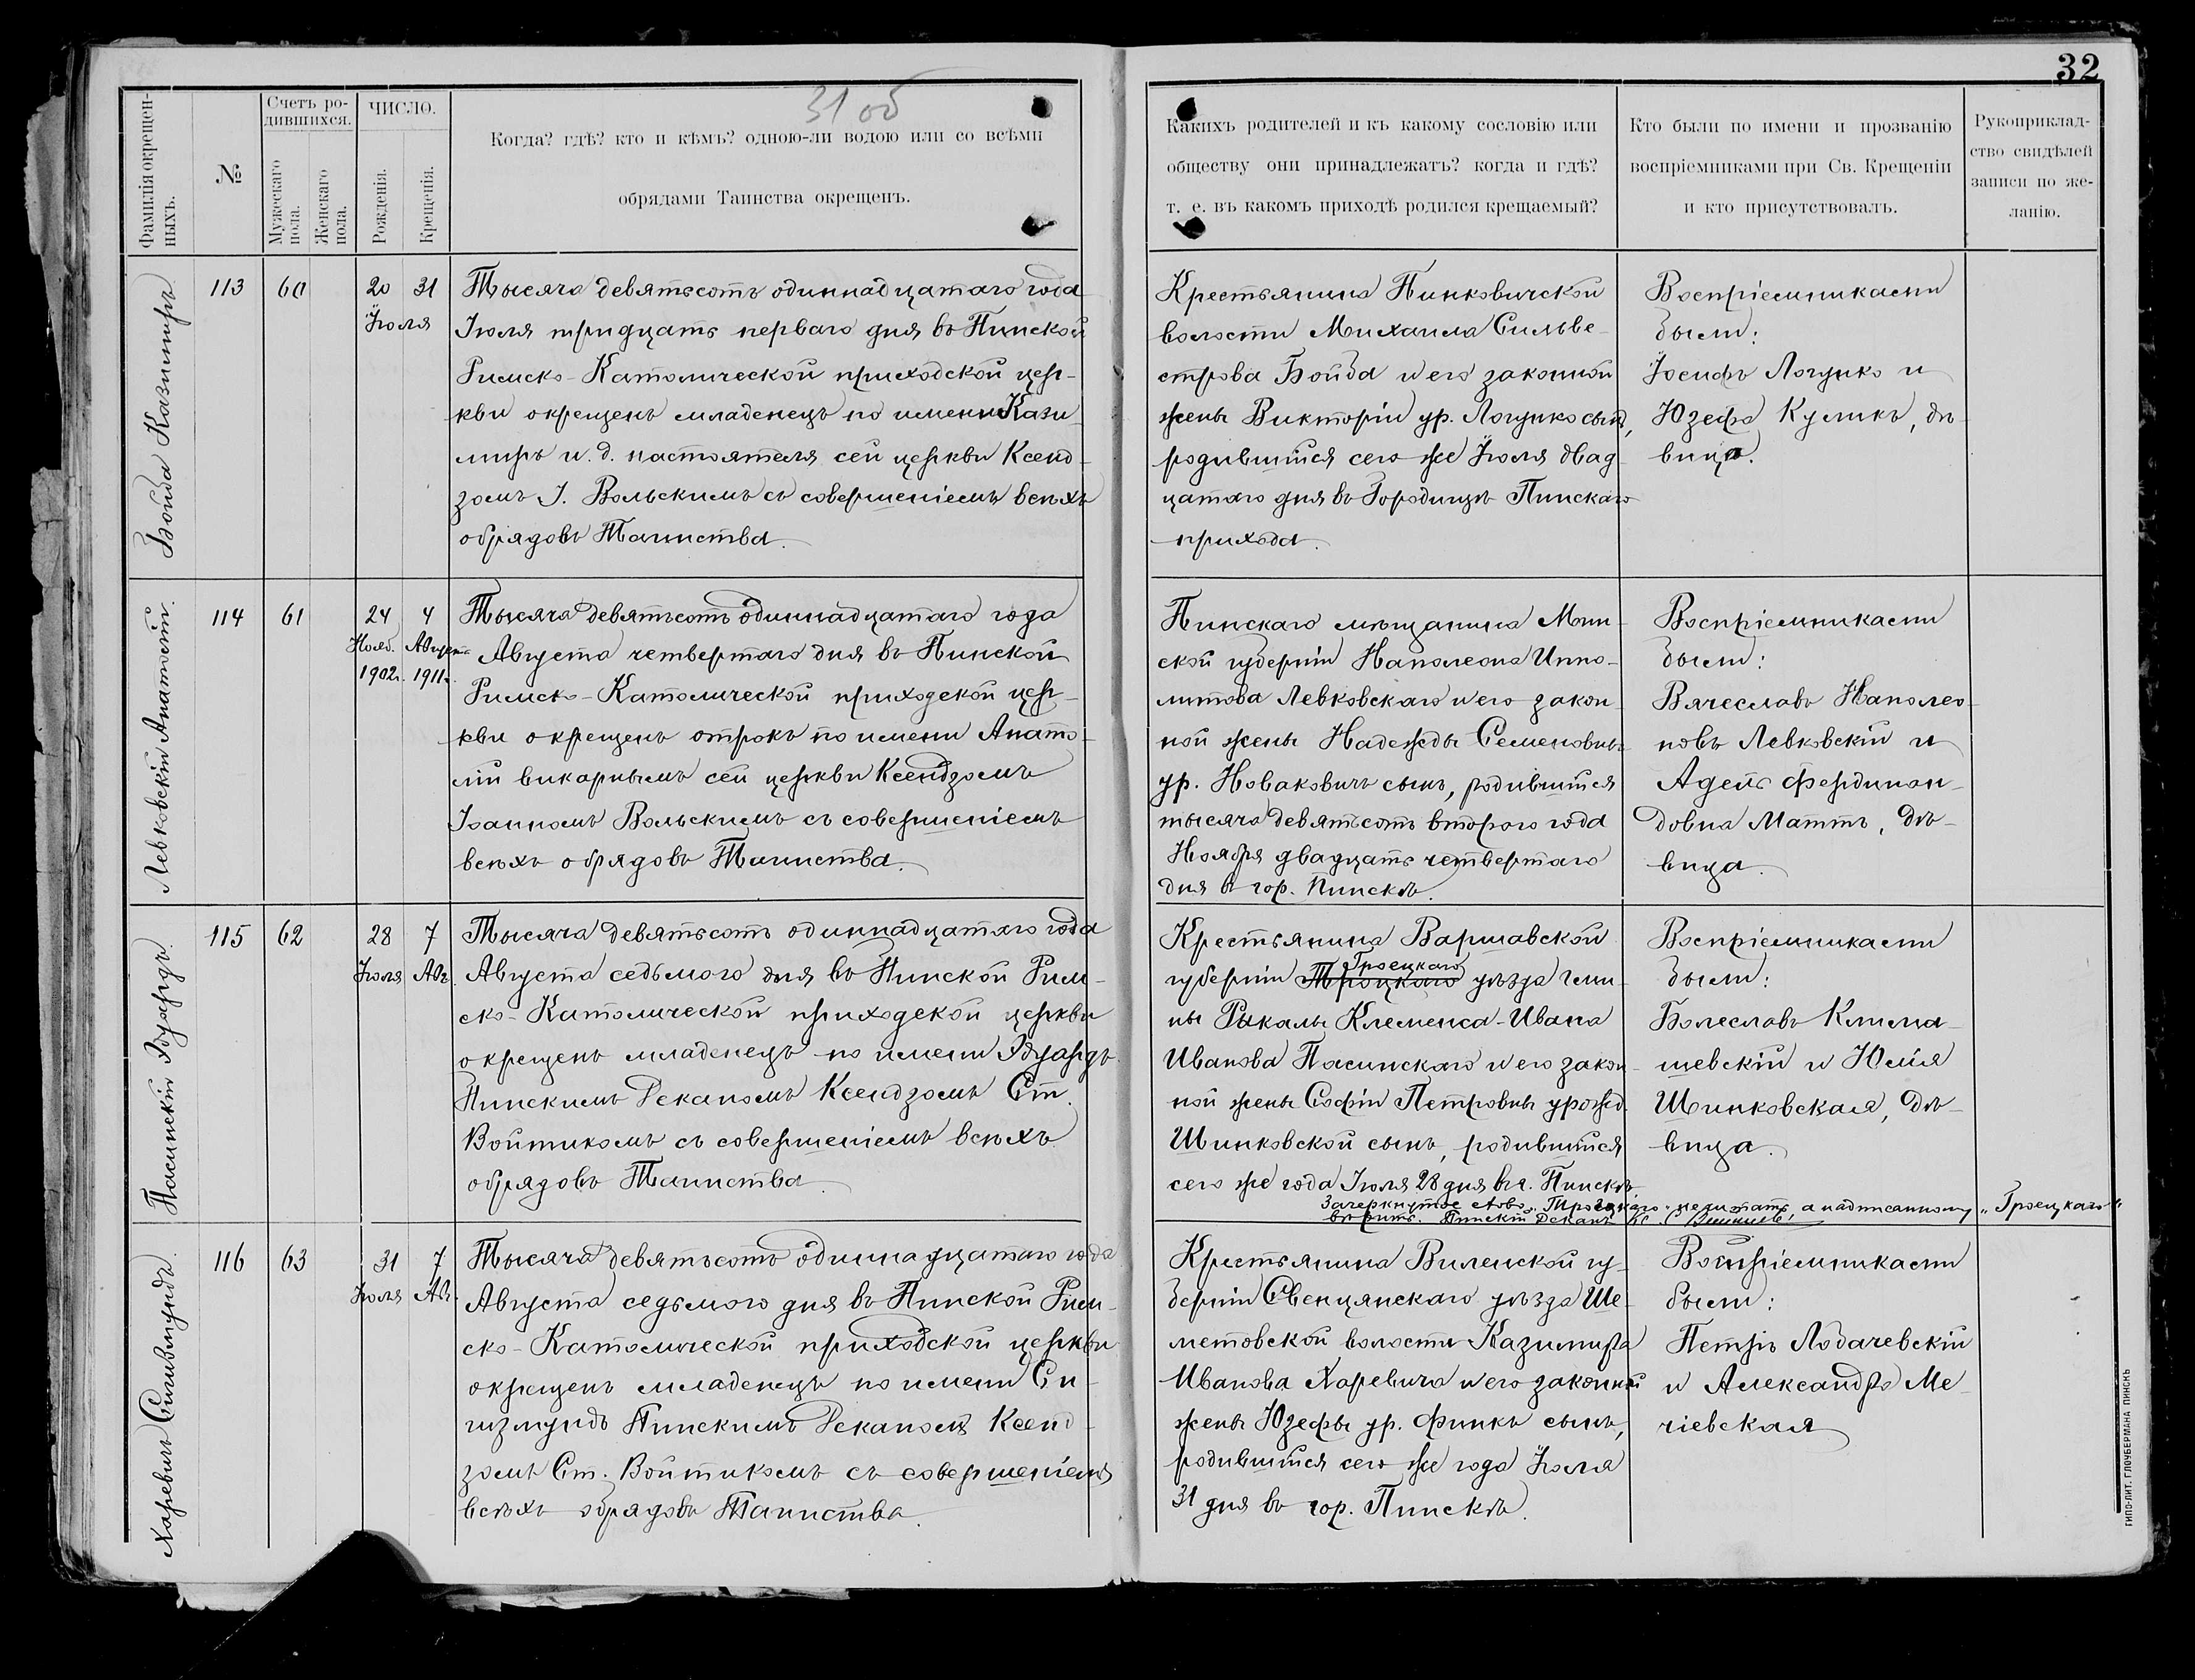 32
31 об
Фамилія окрещен-
ныхъ.
№
Счетъ ро-
дившихся.
Мужескаго
пола.
Женскаго
пола.
ЧИСЛО.
Рожденія.
Крещенія.
Когда? гдѣ? кто и кѣмъ? одною-ли водою или со всѣми
обрядами Таинства окрещенъ.
Какихъ родителей и къ какому сословію или
обществу они принадлежатъ? когда и гдѣ?
т. е. въ какомъ приходѣ родился крещаемый?
Кто были по имени и прозванію
воспріемниками при Св. Крещеніи
и кто присутствовалъ.
Рукоприклад-
ство свидѣлей
записи по же-
ланію.
Бойда Казимиръ
113
60
20 31
Іюля
Тысяча девятьсотъ одиннадцатаго года
Іюля тридцать перваго дня въ Пинской
Римско-Католической приходской цер-
кви окрещенъ младенецъ по имени Кази-
миръ и. д. настоятеля сей церкви Ксенд-
зомъ І. Вольскимъ съ совершеніемъ всѣхъ
обрядовъ Таинства.
Крестьянина Пинковичской
волости Михаила Сильве-
строва Бойда и его законной
жены Викторіи ур. Логушко сынъ,
родившійся сего же Іюля двад-
цатаго дня въ Городищѣ Пинскаго
прихода.
Воспріемниками
были:
Іосифъ Логушко и
Юзефа Куликъ, дѣ-
вица.
Левковскій Анатолій.
114
61
24 4
Нояб. Августа
1902г. 1911г.
Тысяча девятьсотъ одиннадцатаго года
Августа четвертаго дня въ Пинской
Римско-Католической приходской цер-
кви окрещенъ отрокъ по имени Анато-
лій викарнымъ сей церкви Ксендзомъ
Іоанномъ Вольскимъ съ совершеніемъ
всѣхъ обрядовъ Таинства.
Пинскаго мѣщанина Мин-
ской губерніи Наполеона Иппо-
литова Левковскаго и его закон-
ной жены Надежды Семеновны
ур. Новаковичъ сынъ, родившійся
тысяча девятьсотъ второго года
Ноября двадцать четвертаго
дня въ гор. Пинскѣ.
Воспріемниками
были:
Вячеславъ Наполео-
новъ Левковскій и
Адель Фердинан-
довна Маттъ, дѣ-
вица.
Пасинскій Эдуардъ.
115
62
28 7
Іюля Авг.
Тысяча девятьсотъ одиннадцатаго года
Августа седьмого дня въ Пинской Рим-
ско-Католической приходской церкви
окрещенъ младенецъ по имени Эдуардъ
Пинскимъ Деканомъ Ксендзомъ Ст.
Войтикомъ съ совершеніемъ всѣхъ
обрядовъ Таинства.
Крестьянина Варшавской
Гроецкаго
губерніи Троцкаго уѣзда гми-
ны Рыкалы Клеменса-Ивана
Иванова Пасинскаго и его закон-
ной жены Софіи Петровны урожд.
Шинковской сынъ, родившійся
сего же года Іюля 28 дня въ г. Пинскѣ
Зачеркнутое слово „Троцкаго" не читать, а надписанному „Гроецкаго"
вѣрить. Пинскій Деканъ Кс. С
Воспріемниками
были:
Болеславъ Клима-
шевскій и Юлія
Шинковская, дѣ-
вица.
Харевичъ Сигизмундъ.
116
63
31 7
Іюля Авг.
Тысяча девятьсотъ одиннадцатаго года
Августа седьмого дня въ Пинской Рим-
ско-Католической приходской церкви
окрещенъ младенецъ по имени Си-
гизмундъ Пинскимъ Деканомъ Ксенд-
зомъ Ст. Войтикомъ съ совершеніемъ
всѣхъ обрядовъ Таинства.
Крестьянина Виленской гу-
берніи Свенцянскаго уѣзда Ше-
метовской волости Казимира
Иванова Харевича и его законной
жены Юзефы ур. Финкъ сынъ,
родившійся сего же года Іюля
31 дня въ гор. Пинскѣ.
Воспріемниками
были:
Петръ Лодачевскій
и Александра Ме-
чіевская
ТИПО-ЛИТ. ГЛОУБЕРМАНА ПИНСКЪ